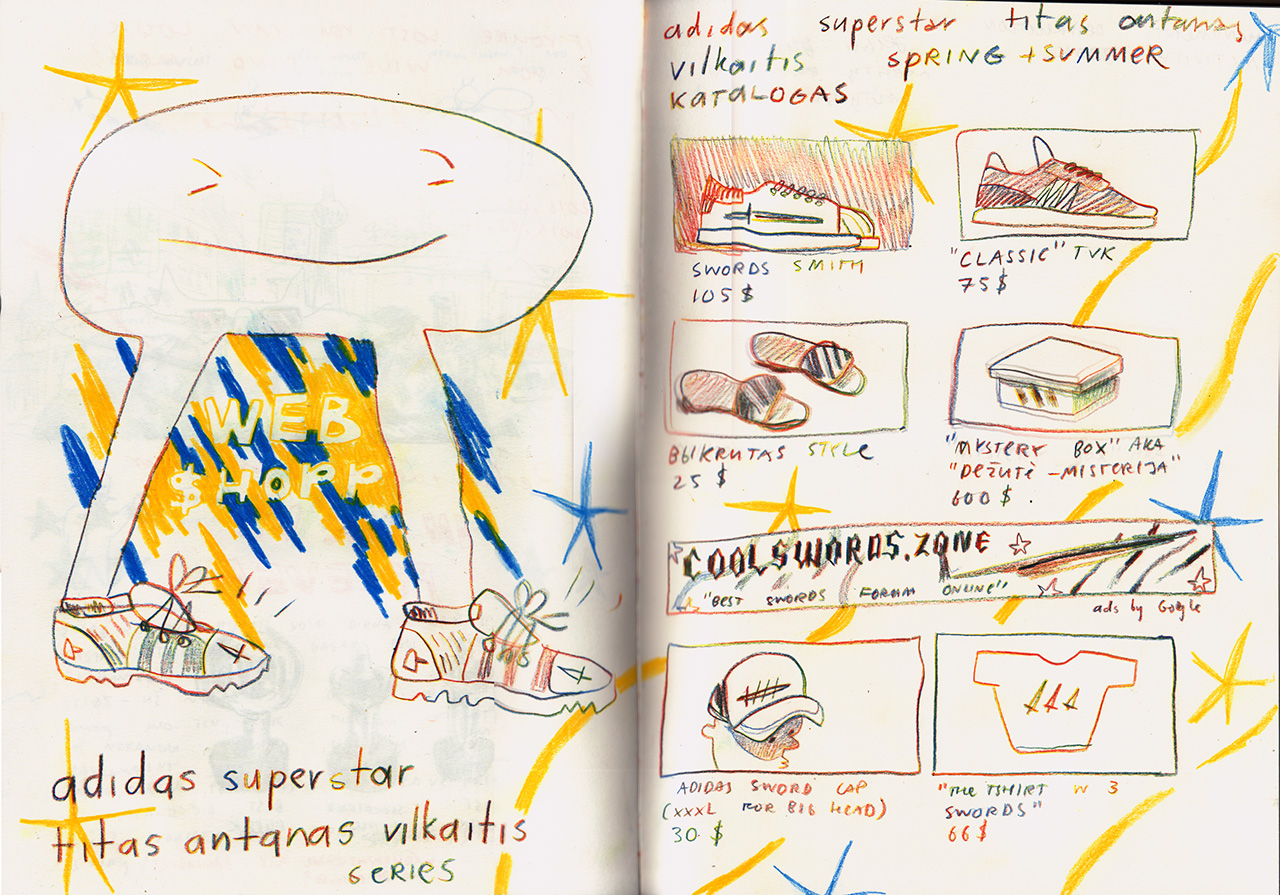 WEB
$HOPP
adidas superstar
titas antanas vilkaitis
SERIES
adidas superstar titas antanas
vilkaitis SPRING + SUMMER
KATALOGAS
SWORDS SMITH
105$
"CLASSIC" TVK
75$
BбIKRUTAS STYLE
25$
"MYSTERY BOX" AKA
"DĖŽUTĖ - MISTERIJA"
600$.
COOLSWORDS.ZONE
"BEST SWORDS FORUM ONLINE"
ads by Google
ADIDAS SWORD CAP
(XXXL FOR BIG HEAD)
30$
"THE TSHIRT W 3
SWORDS"
66$